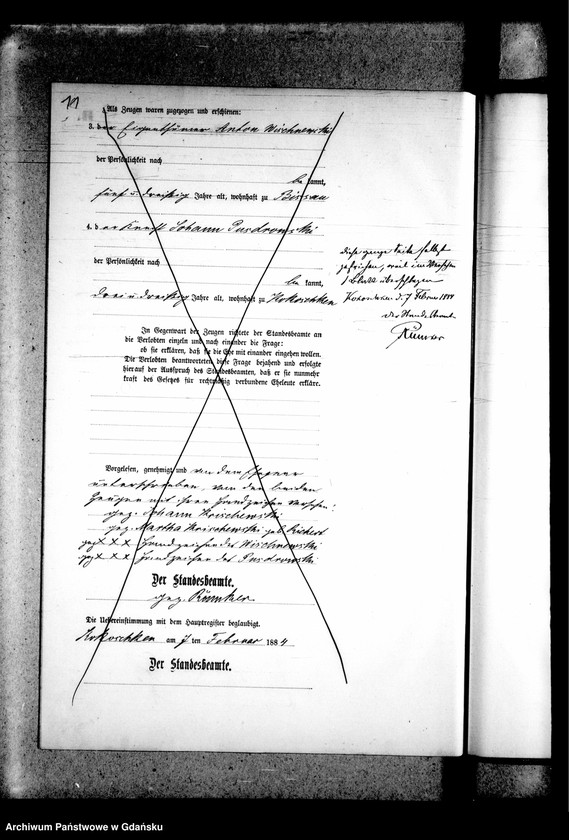 11
Als Zeugen waren zugezogen und erschienen:
3. der Eigenthümer Anton Wischnewski
der Persönlichkeit nach
bekannt,
fünf u dreißig Jahre alt, wohnhaft zu Bissau
4. der Knecht Johann Pusdrowski
der Persönlichkeit nach
bekannt,
drei u dreißig Jahre alt, wohnhaft zu Kokoschken
In Gegenwart der Zeugen richtete der Standesbeamte an
die Verlobten einzeln und nach einander die Frage:
ob sie erklären, daß sie die Ehe mit einander eingehen wollen.
Die Verlobten beantworteten diese Frage bejahend und erfolgte
hierauf der Ausspruch des Standesbeamten, daß er sie nunmehr
kraft des Gesetzes für rechtmäßig verbundene Eheleute erkläre.
Vorgelesen, genehmigt und von dem Ehepaar
unterschrieben, von den beiden
Zeugen mit ihren Handzeichen versehen:
gez. Johann Kroischewski
gez. Martha Kroischewski geb. Richert
gez X X X Handzeichen des Wischnewski
gez X X X Handzeichen des Pusdrowski
Der Standesbeamte.
gez.
Die Uebereinstimmung mit dem Hauptregister beglaubigt.
Kokoschken am 7 ten Februar 1884
Der Standesbeamte.
Diese ganze Seite selbst
gestrichen, weil
1 Blatt überschlagen
Kokoschken d. 7 Februar 1884
der Standesbeamte
Archiwum Państwowe w Gdańsku